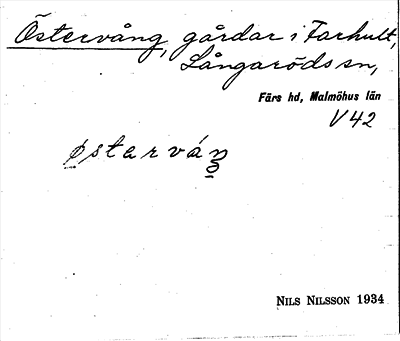 Östervång, gårdar i Farhult,
Långaröds sn,
Färs hd, Malmöhus län
V 42
østerváŋ
NILS NILSSON 1934